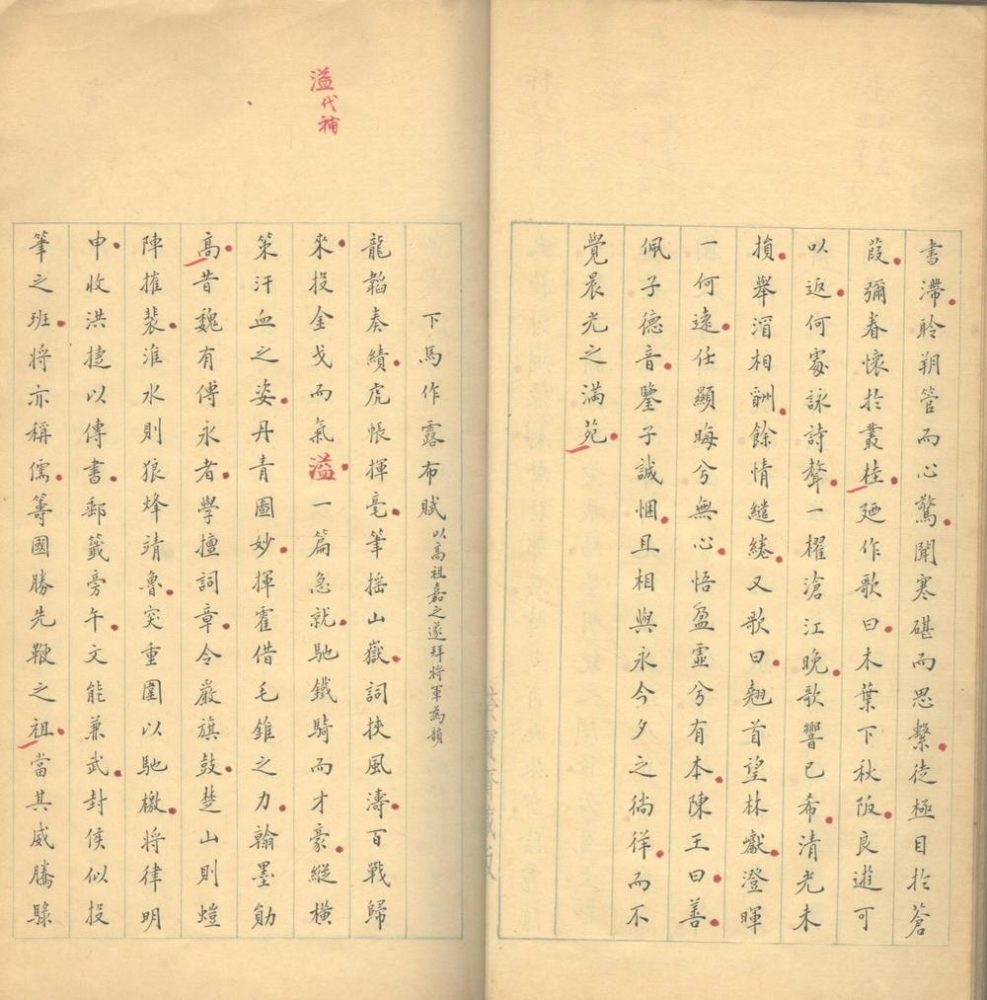 書滯聆朔管而心驚聞寒碪而思繫徒極目於蒼
葭彌眷懷於叢桂廼作歌曰木葉下秋阪良遊可
以返何處詠詩聲一櫂滄江晚歌響已希清光未
損舉涓相酬餘情繾綣又歌曰翹首望林巘澄暉
一何遠任顯晦兮無心悟盈虛兮有本陳王曰善
佩子德音鑒子誠悃且相與永今夕之徜徉而不
覺晨光之滿苑
溢代補
下馬作露布賦以高祖嘉之遂拜將軍為韻
龍韜奏績虎帳揮毫筆搖山嶽詞挾風濤百戰歸
來投金戈而氣溢一篇急就馳鐵騎而才豪縱橫
策汗血之姿丹青圖妙揮霍借毛錐之力翰墨勛
高昔魏有傅永者學擅詞章令嚴旗鼓楚山則螘
陣摧裴淮水則狼烽靖魯突重圍以馳檄將律明
申收洪捷以傳書郵籤旁午文能兼武封侯似投
筆之班將亦稱儒籌國勝先鞭之祖當其威騰騄